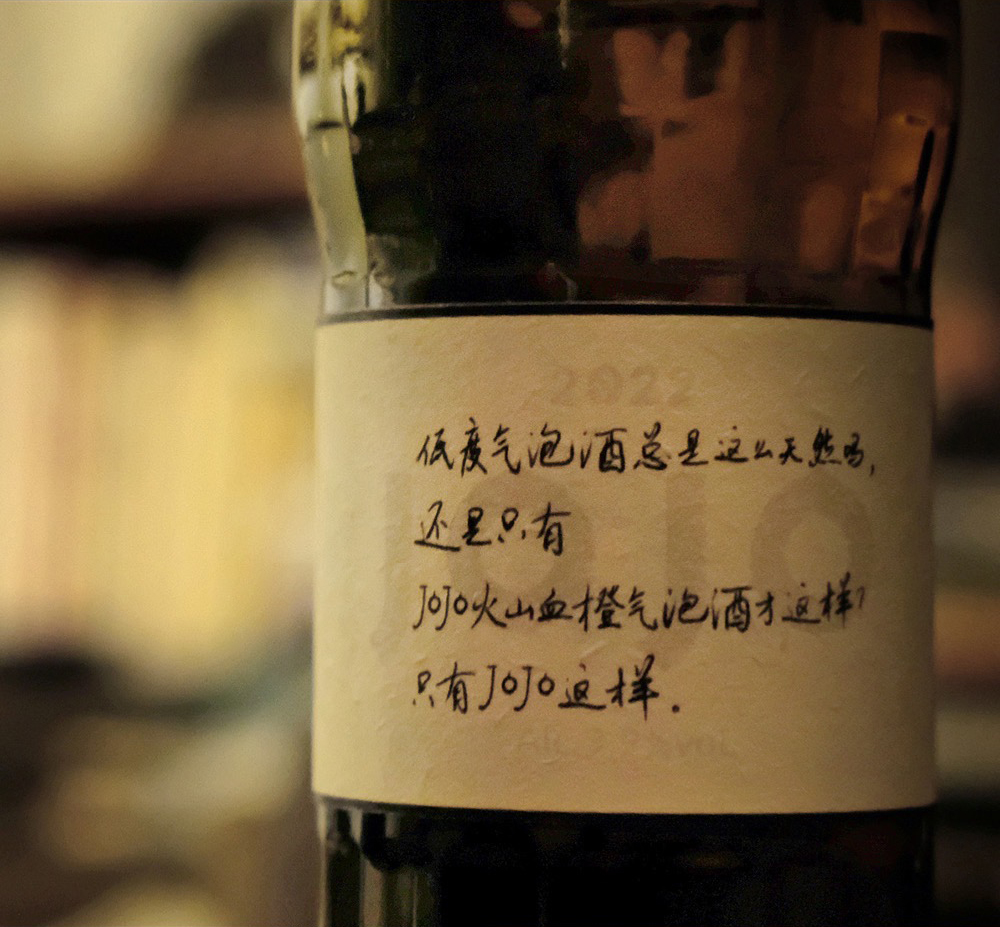 2022
低度气泡酒总是这么天然吗,
还是只有
JOJO火山血橙气泡酒才这样?
只有JOJO这样.
JOJO